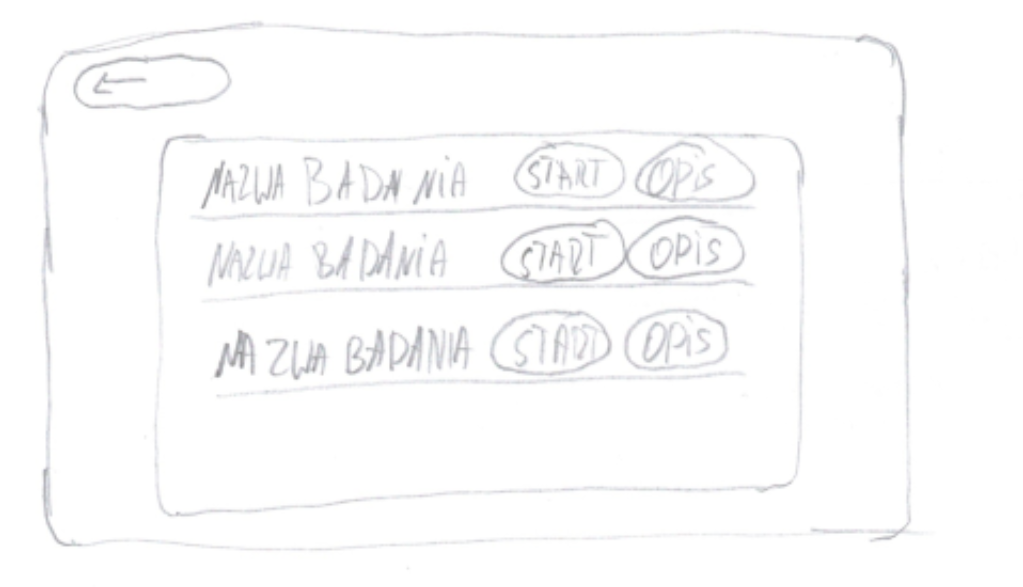 NAZWA BADANIA START OPIS
NAZWA BADANIA START OPIS
NAZWA BADANIA START OPIS